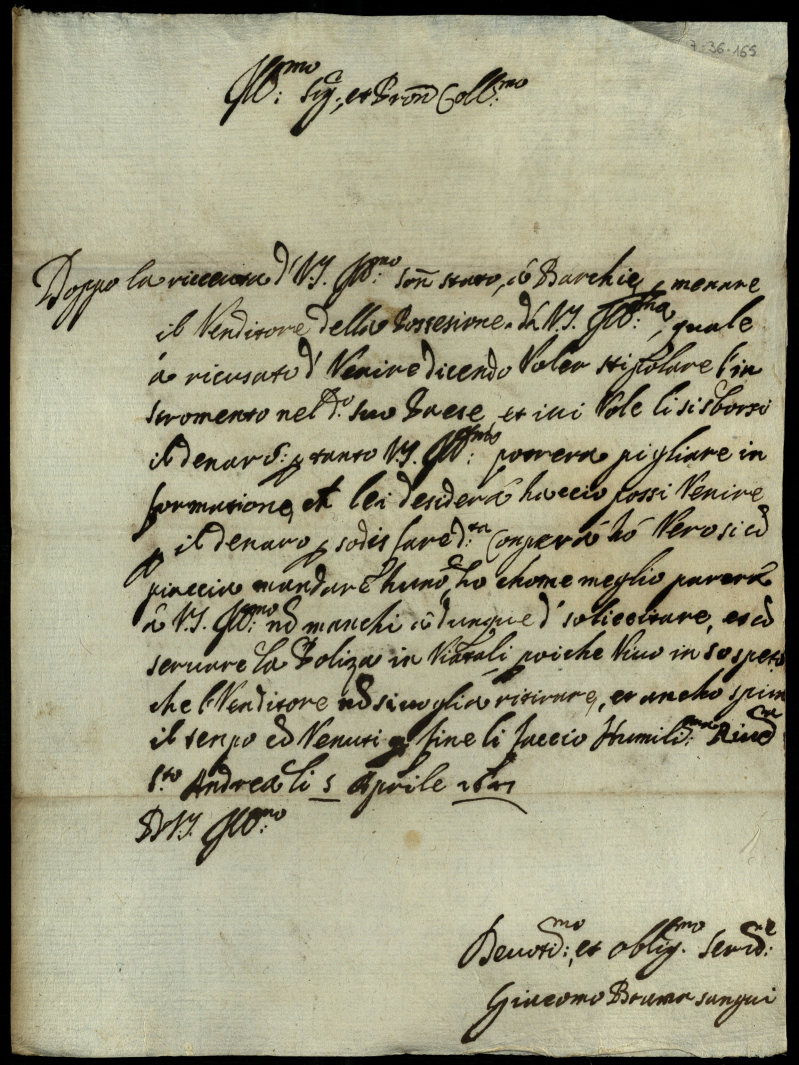 7-36-165
Ill:mo Sig:r, et Pron Coll:mo
Doppo la ricceuta d' V.S. Ill:mo son stato, à Barchie, p menare
il Venditore della Possesione di V.S. Ill:ma, quale
à ricusato d' Venire dicendo Voler stipolare l'in
stromento nel d:o suo Paese, et ivi Vole li si sborsi
il denaro: p tanto V.S. Ill:mo potrera pigliare in
formatione, et lei desiderà haccio possi Venire
p il denaro p sodisfare d:ta Conperà hò Vero si
piaccia mandare huno, ho chome meglio parera
à V.S. Ill:mo nō manchi dunque d' soliccitare, et
seruare la Poliza in Viatali poiche Vivo in sospeto
che l'Venditore nō si voglia ritirare, et ancho spira
il tenpo Venuti p fine li faccio Humili:ma
S:to Andrea li 5 Aprile
D V.S. Ill:mo
Devoti:mo, et oblig:mo Ser:re
Giacomo